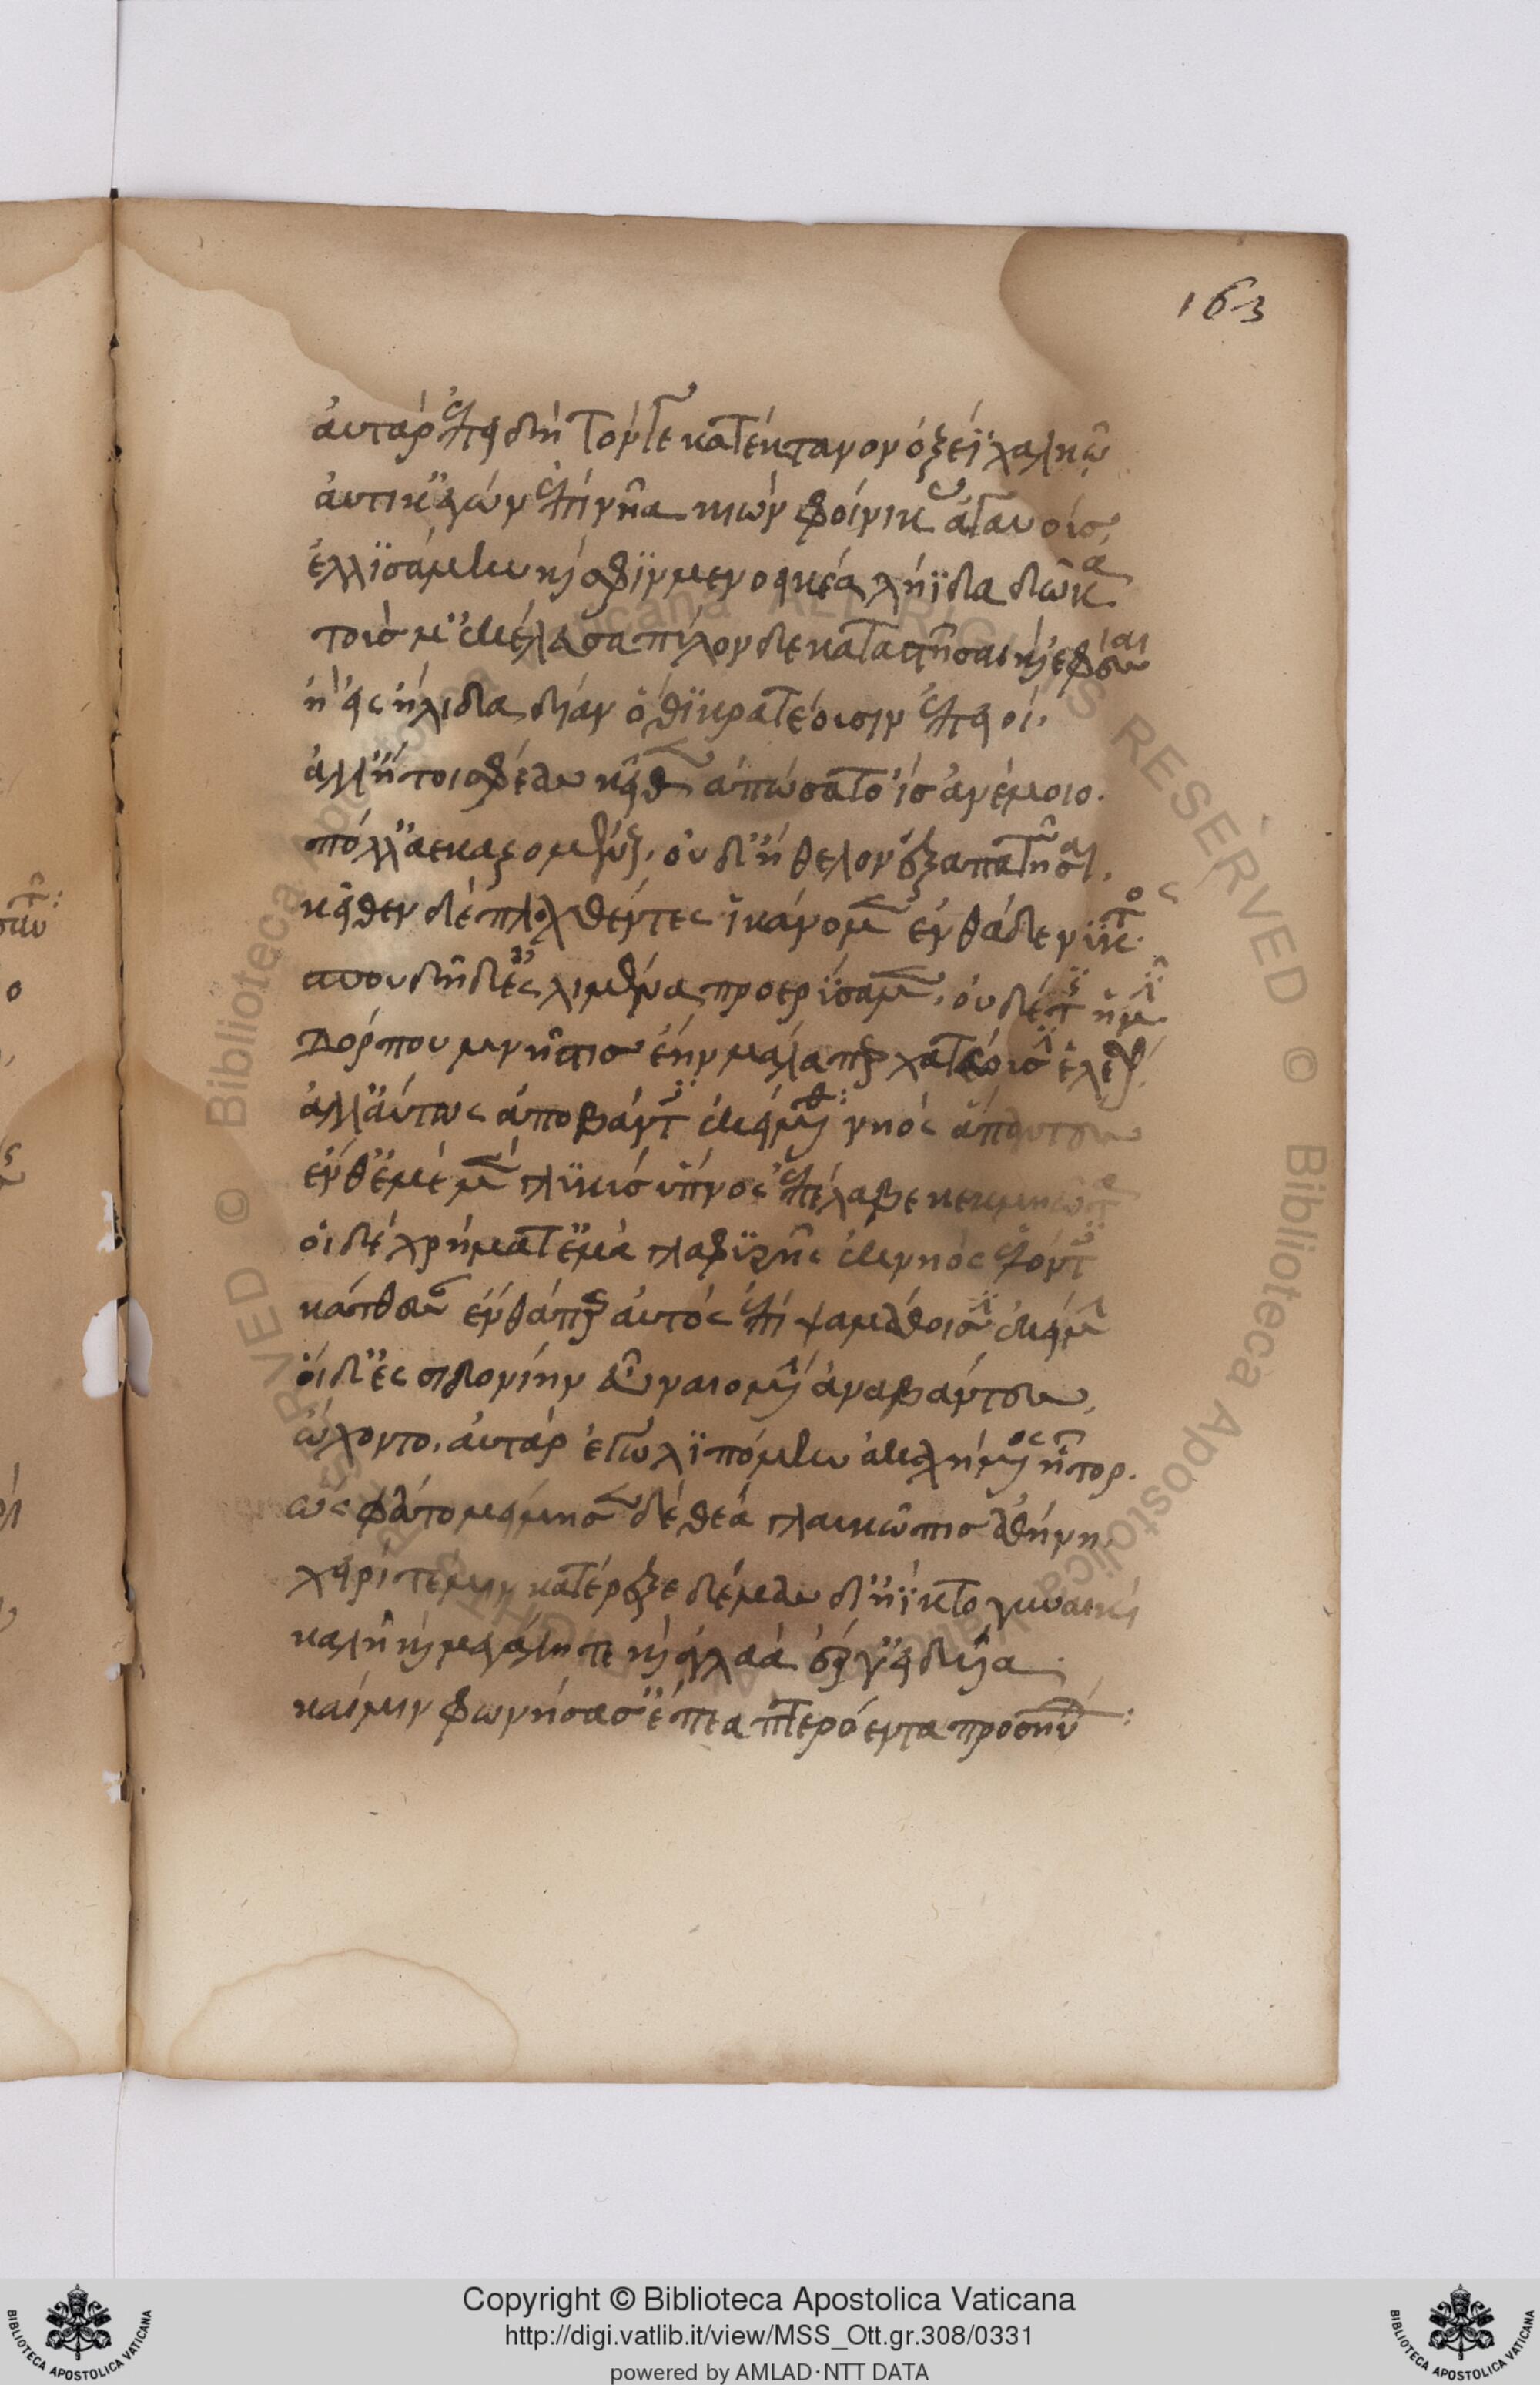 163
αὐτὰρ ἐπειδὴ τόνγε κατέκτανον ὀξέϊ χαλκῶ
αὐτίκ' ἐγὼν ἐπὶ νῆα κιὼν φοίνικας ἀγαυοὺς
ἐλλισάμην καί σφιν μενοεικέα ληΐδα δῶκα
τούς μ' ἐκέλευσα πύλονδε καταστῆσαι καὶ ἐφέσσαι
ἢ εἰς ἤλιδα δῖαν ὅθι κρατέουσιν ἐπειοί.
ἀλλ' ἤτοι σφέας κεῖθεν ἀπώσατο ἲς ἀνέμοιο.
πόλλ' ἀεκαζομένους. οὐδ' ἤθελον ἐξαπατῆσαι.
κεῖθεν δὲ πλαγχθέντες ἱκάνομεν ἐνθάδε νυκτός
σπουδῇ δ' ἐς λιμένα προερύσαμεν, οὐδέ τις ἡμῖν
Δόρπου μνῆστις ἔην μάλα περ χατέουσιν ἑλέσθαι.
ἀλλ' αὔτως ἀποβάντες ἐκείμεθα νηὸς ἅπαντες
ἔνθ' ἐμὲ μὲν γλυκὺς ὕπνος ἐπέλαβε κεκμηῶτα
οἱ δὲ χρήματ' ἐμὰ γλαφυρῆς ἐκ νηὸς ἑλόντες
κάτθεσαν ἔνθά περ αὐτὸς ἐπὶ ψαμάθοισιν ἐκείμην
οἱ δ' ἐς σιδονίην εὖ ναιομένην ἀναβάντες.
ᾤχοντο. αὐτὰρ ἐγὼ λιπόμην ἀκαχήμενος ἦτορ.
ὣς φάτο μείδησεν δὲ θεὰ γλαυκῶπις ἀθήνη.
χειρί τέ μιν κατέρεξε δέμας δ' ἤϊκτο γυναικὶ
καλῇ καὶ μεγάλη τε καὶ ἀγλαὰ ἔργ' εἰδυῖα.
καί μιν φωνήσασ' ἔπεα πτερόεντα προσηύδα:
Copyright © Biblioteca Apostolica Vaticana
http://digi.vatlib.it/view/MSS_Ott.gr.308/0331
powered by AMLAD·NTT DATA